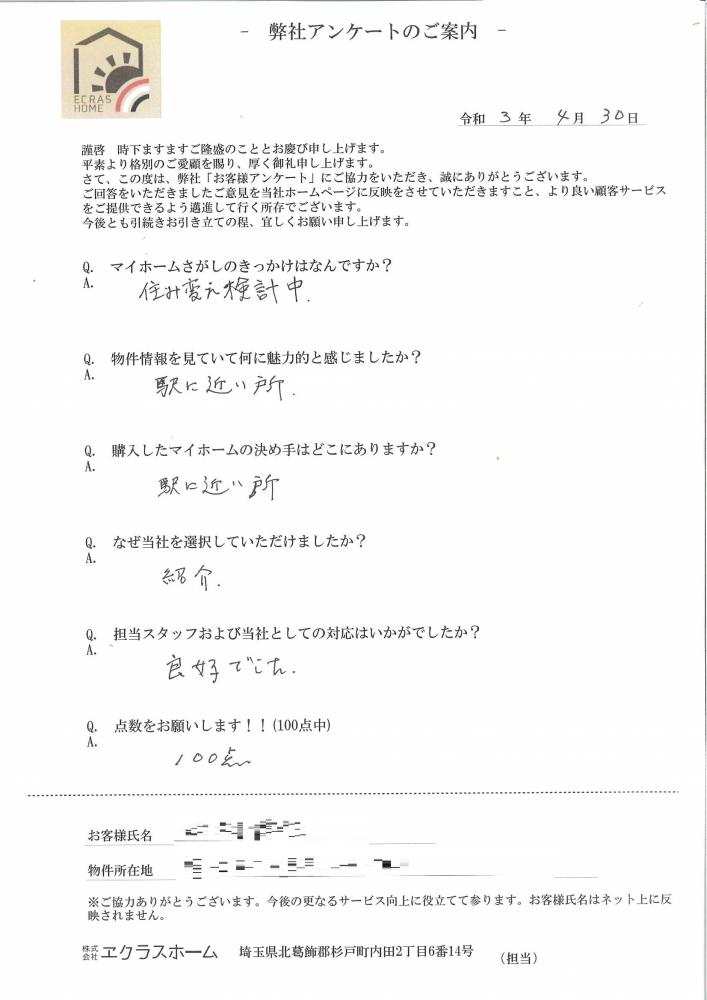 ECRAS
HOME
- 弊社アンケートのご案内 -
令和 3 年 4 月 30 日
謹啓 時下ますますご隆盛のこととお慶び申し上げます。
平素より格別のご愛顧を賜り、厚く御礼申し上げます。
さて、この度は、弊社「お客様アンケート」にご協力をいただき、誠にありがとうございます。
ご回答をいただきましたご意見を当社ホームページに反映をさせていただきますこと、より良い顧客サービス
をご提供できるよう邁進して行く所存でございます。
今後とも引続きお引き立ての程、宜しくお願い申し上げます。
Q. マイホームさがしのきっかけはなんですか？
A. 住み変え検討中.
Q. 物件情報を見ていて何に魅力的と感じましたか？
A. 駅に近い所.
Q. 購入したマイホームの決め手はどこにありますか？
A. 駅に近い所
Q. なぜ当社を選択していただけましたか？
A. 紹介.
Q. 担当スタッフおよび当社としての対応はいかがでしたか？
A. 良好でした.
Q. 点数をお願いします！！(100点中)
A. 100点
お客様氏名
物件所在地
※ご協力ありがとうございます。今後の更なるサービス向上に役立てて参ります。お客様氏名はネット上に反
映されません。
株式会社 ヱクラスホーム 埼玉県北葛飾郡杉戸町内田2丁目6番14号 （担当）